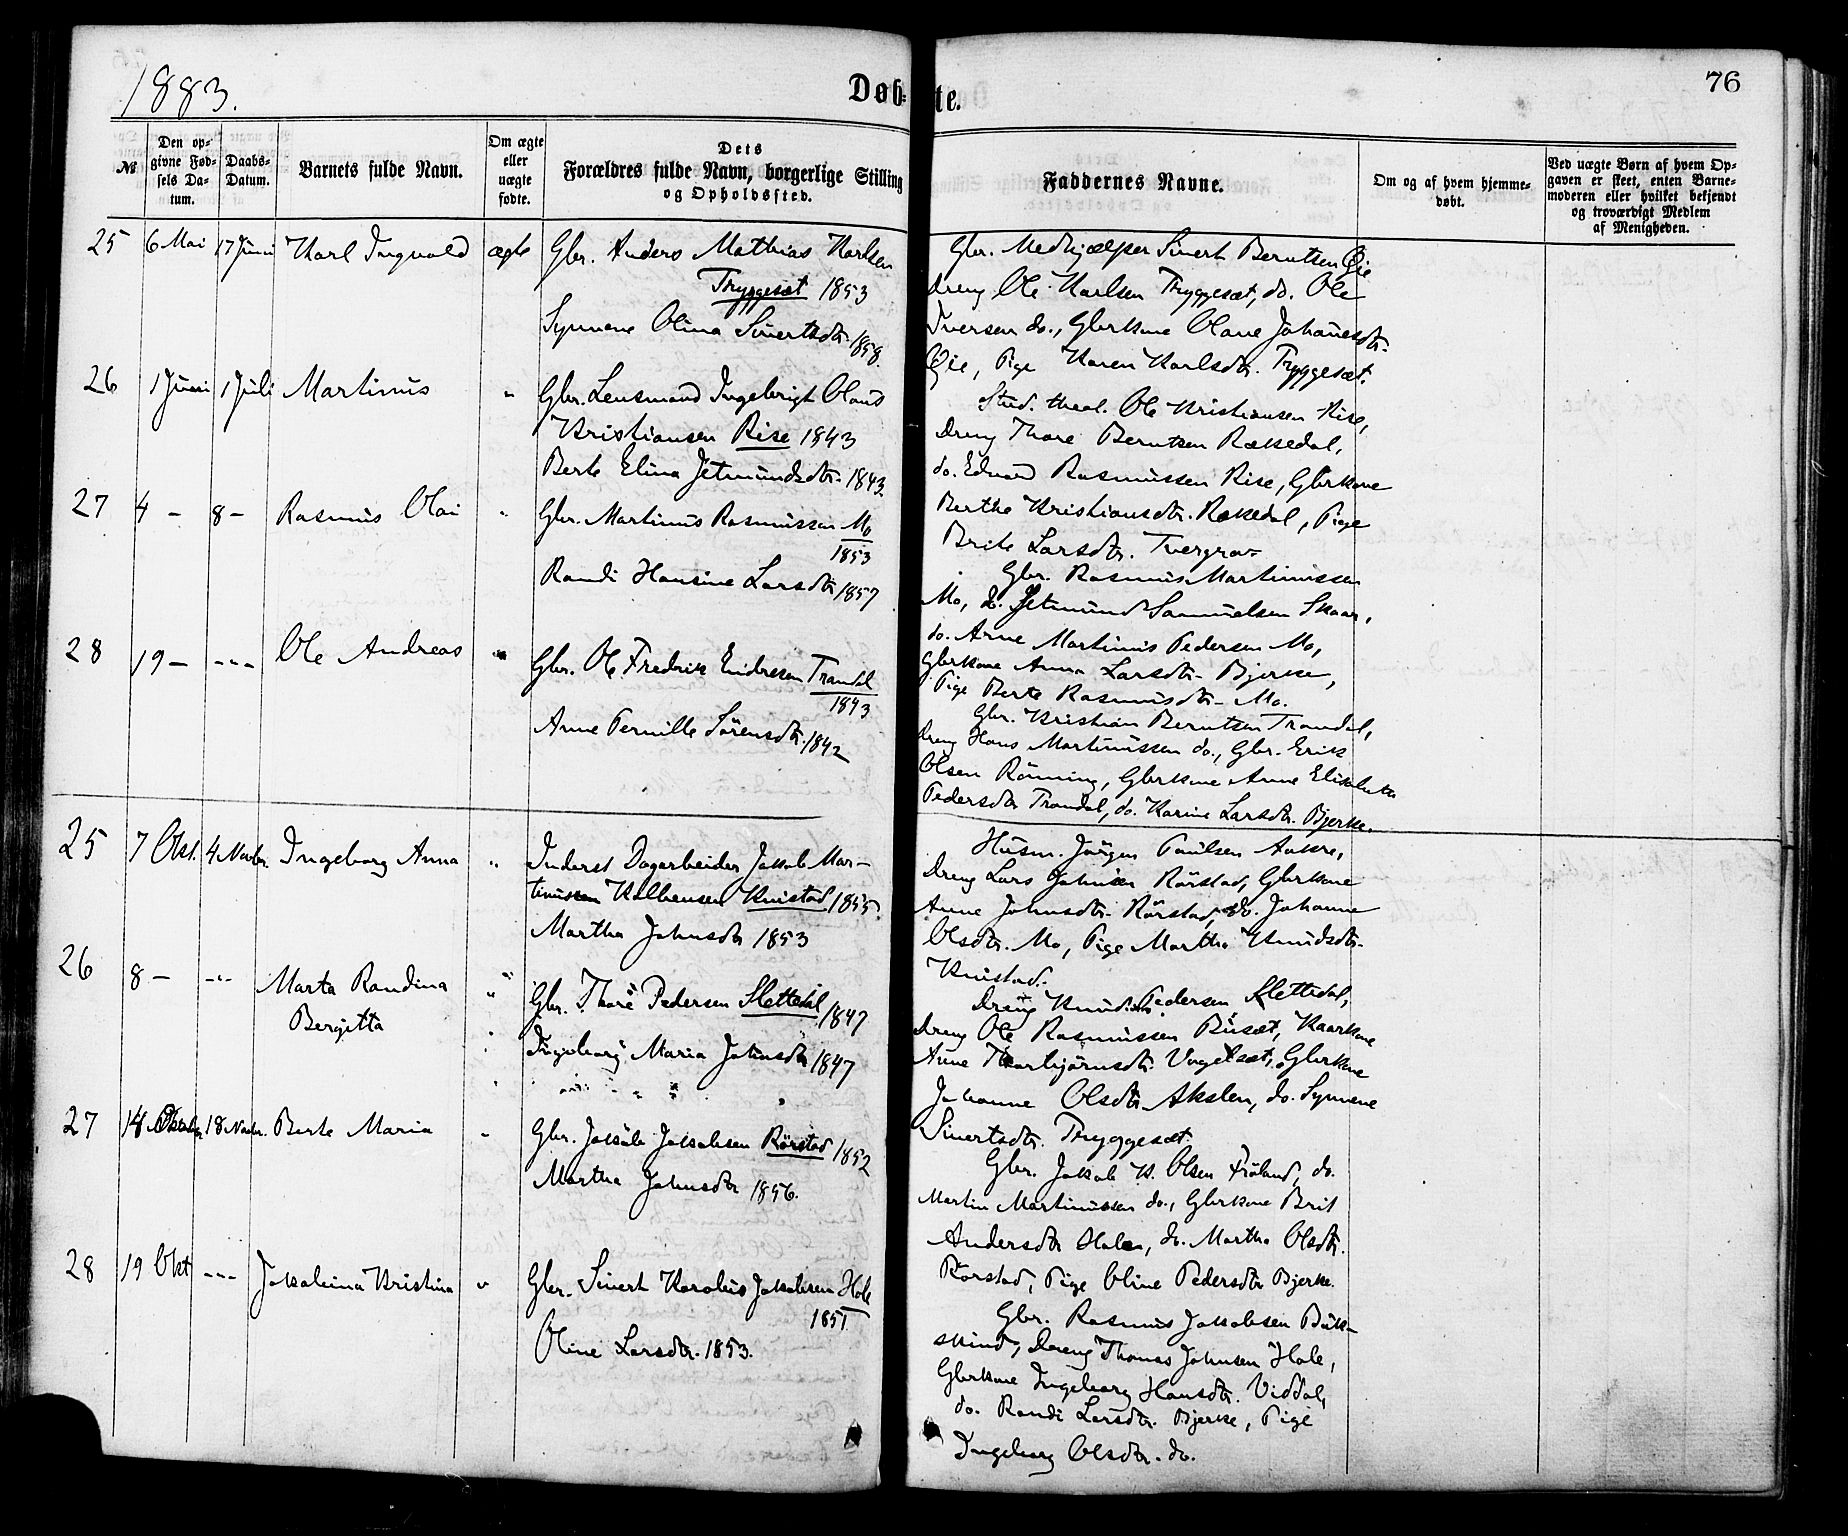 1883.
Døb-
te.
76
№
Den op-
givne Fød-
sels Da-
tum.
Daabs-
Datum.
Barnets fulde Navn.
Om ægte
eller
uægte
fødte.
Dets
Forældres fulde Navn, borgerlige Stilling
og Opholdssted.
Faddernes Navne.
Om og af hvem hjemme-
døbt.
Ved uægte Børn af hvem Op-
gaven er skeet, enten Barne-
moderen eller hvilket bekjendt
og troværdigt Medlem
af Menigheden.
25 6 Mai 17 Juni Karl Ingvald ægte Gbr. Anders Mathias Karlsen
Tryggesæt 1853
Synneve Olina Sivertsdtr. 1858.
Gbr. Medhjælper Sivert Berntsen Øie
dreng Ole Karlsen Tryggesæt, do. Ole
Iversen do., Gbrkone Olave Johannesdtr.
Øie, Pige Karen Karlsdtr. Tryggesæt.
26 1 Juni 1 Juli Martinus " Gbr. Lensmand Ingebrigt Olaus
Kristiansen Rise 1843
Berte Elina Jetmundsdtr. 1843.
Stud. theol. Ole Kristiansen Rise,
dreng Thore Berntsen Rekkedal,
do. Edvard Rasmussen Rise, Gbrkone
Berthe Kristiansdtr. Rekkedal, Pige
Brite Larsdtr. Tvergrov
27 4 - 8 - Rasmus Olai " Gbr. Martinus Rasmussen Mo
1853
Randi Hansine Larsdtr. 1857
Gbr. Rasmus Martinussen
Mo, do. Jetmund Samuelsen Skaar,
do. Arne Martinus Pedersen Mo,
Gbrkone Anna Larsdtr. Bjerke,
Pige Berte Rasmusdtr. Mo.
28 19 - - - - Ole Andreas " Gbr. Ole Fredrik Endresen Trandal
1843
Anne Pernille Sörensdtr. 1842
Gbr. Kristian Berntsen Trandal,
dreng Hans Martinussen do., Gbr. Erik
Olsen Rönning, Gbrkone Anne Elisabeth
Pedersdtr. Trandal, do. Karine Larsdtr. Bjerke.
25 7 Okt. 4 Novbr. Ingeborg Anna " Inderst Dagarbeider Jakob Mar-
tinussen Kolbensen Knistad 1855.
Martha Johnsdtr 1853
Husm. Jörgen Paulsen Aakre,
dreng Lars Johnsen Rörstad, Gbrkone
Anne Johnsdtr. Rörstad, do. Johanne
Olsdtr. Mo, Pige Martha Knudsdtr.
Knistad.
26 8 - - - - Marta Randina " Gbr. Thore Pedersen Slettedal 1847
Bergitta
Ingeborg Maria Johnsdtr 1847
Dreng Knud Pedersen Slettedal,
dreng Ole Rasmussen Busæt, Kaarkone
Anne Thorbjörnsdtr. Vogelsæt, Gbrkone
Johanne Olsdtr. Akslen, do. Synneve
Sivertsdtr. Tryggesæt
27 14 18 Novbr. Berte Maria " Gbr. Jakob Jakobsen Rørstad 1852
Martha Johnsdtr 1856.
Gbr. Jakob K. Olsen Frøland, do.
Martin Martinussen do., Gbrkone Brit
Andersdtr Holen, do. Martha Olsdtr.
Rörstad, Pige Oline Pedersdtr Bjerke.
28 19 Okt - - - Jakobina Kristina " Gbr. Sivert Karolus Jakobsen Hole
1851
Oline Larsdtr. 1853.
Gbr. Rasmus Jakobsen Buk-
skind, Dreng Thomas Johnsen Hole,
Gbrkone Ingeborg Hansdtr. Viddal,
do. Randi Larsdtr. Bjerke, Pige
Ingeborg Olsdtr. do.